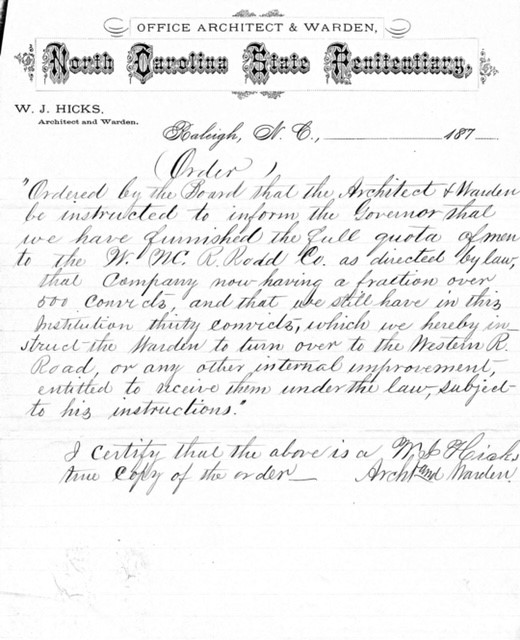 OFFICE ARCHITECT & WARDEN,
North Carolina State Penitentiary,
W. J. HICKS,
Architect and Warden.
Raleigh, N. C., 187
(Order)
"Ordered by the Board that the Architect & Warden
be instructed to inform the Governor that
we have furnished the full quota of men
to the W. NC. R. Road Co. as directed by law,
that Company now having a fraction over
500 convicts, and that we still have in this
Institution thirty convicts, which we hereby in-
struct the Warden to turn over to the Western R.
Road, or any other internal improvement,
entitled to receive them under the law, subject
to his instructions."
I certify that the above is a W. J. Hicks
true copy of the order— Archt and Warden